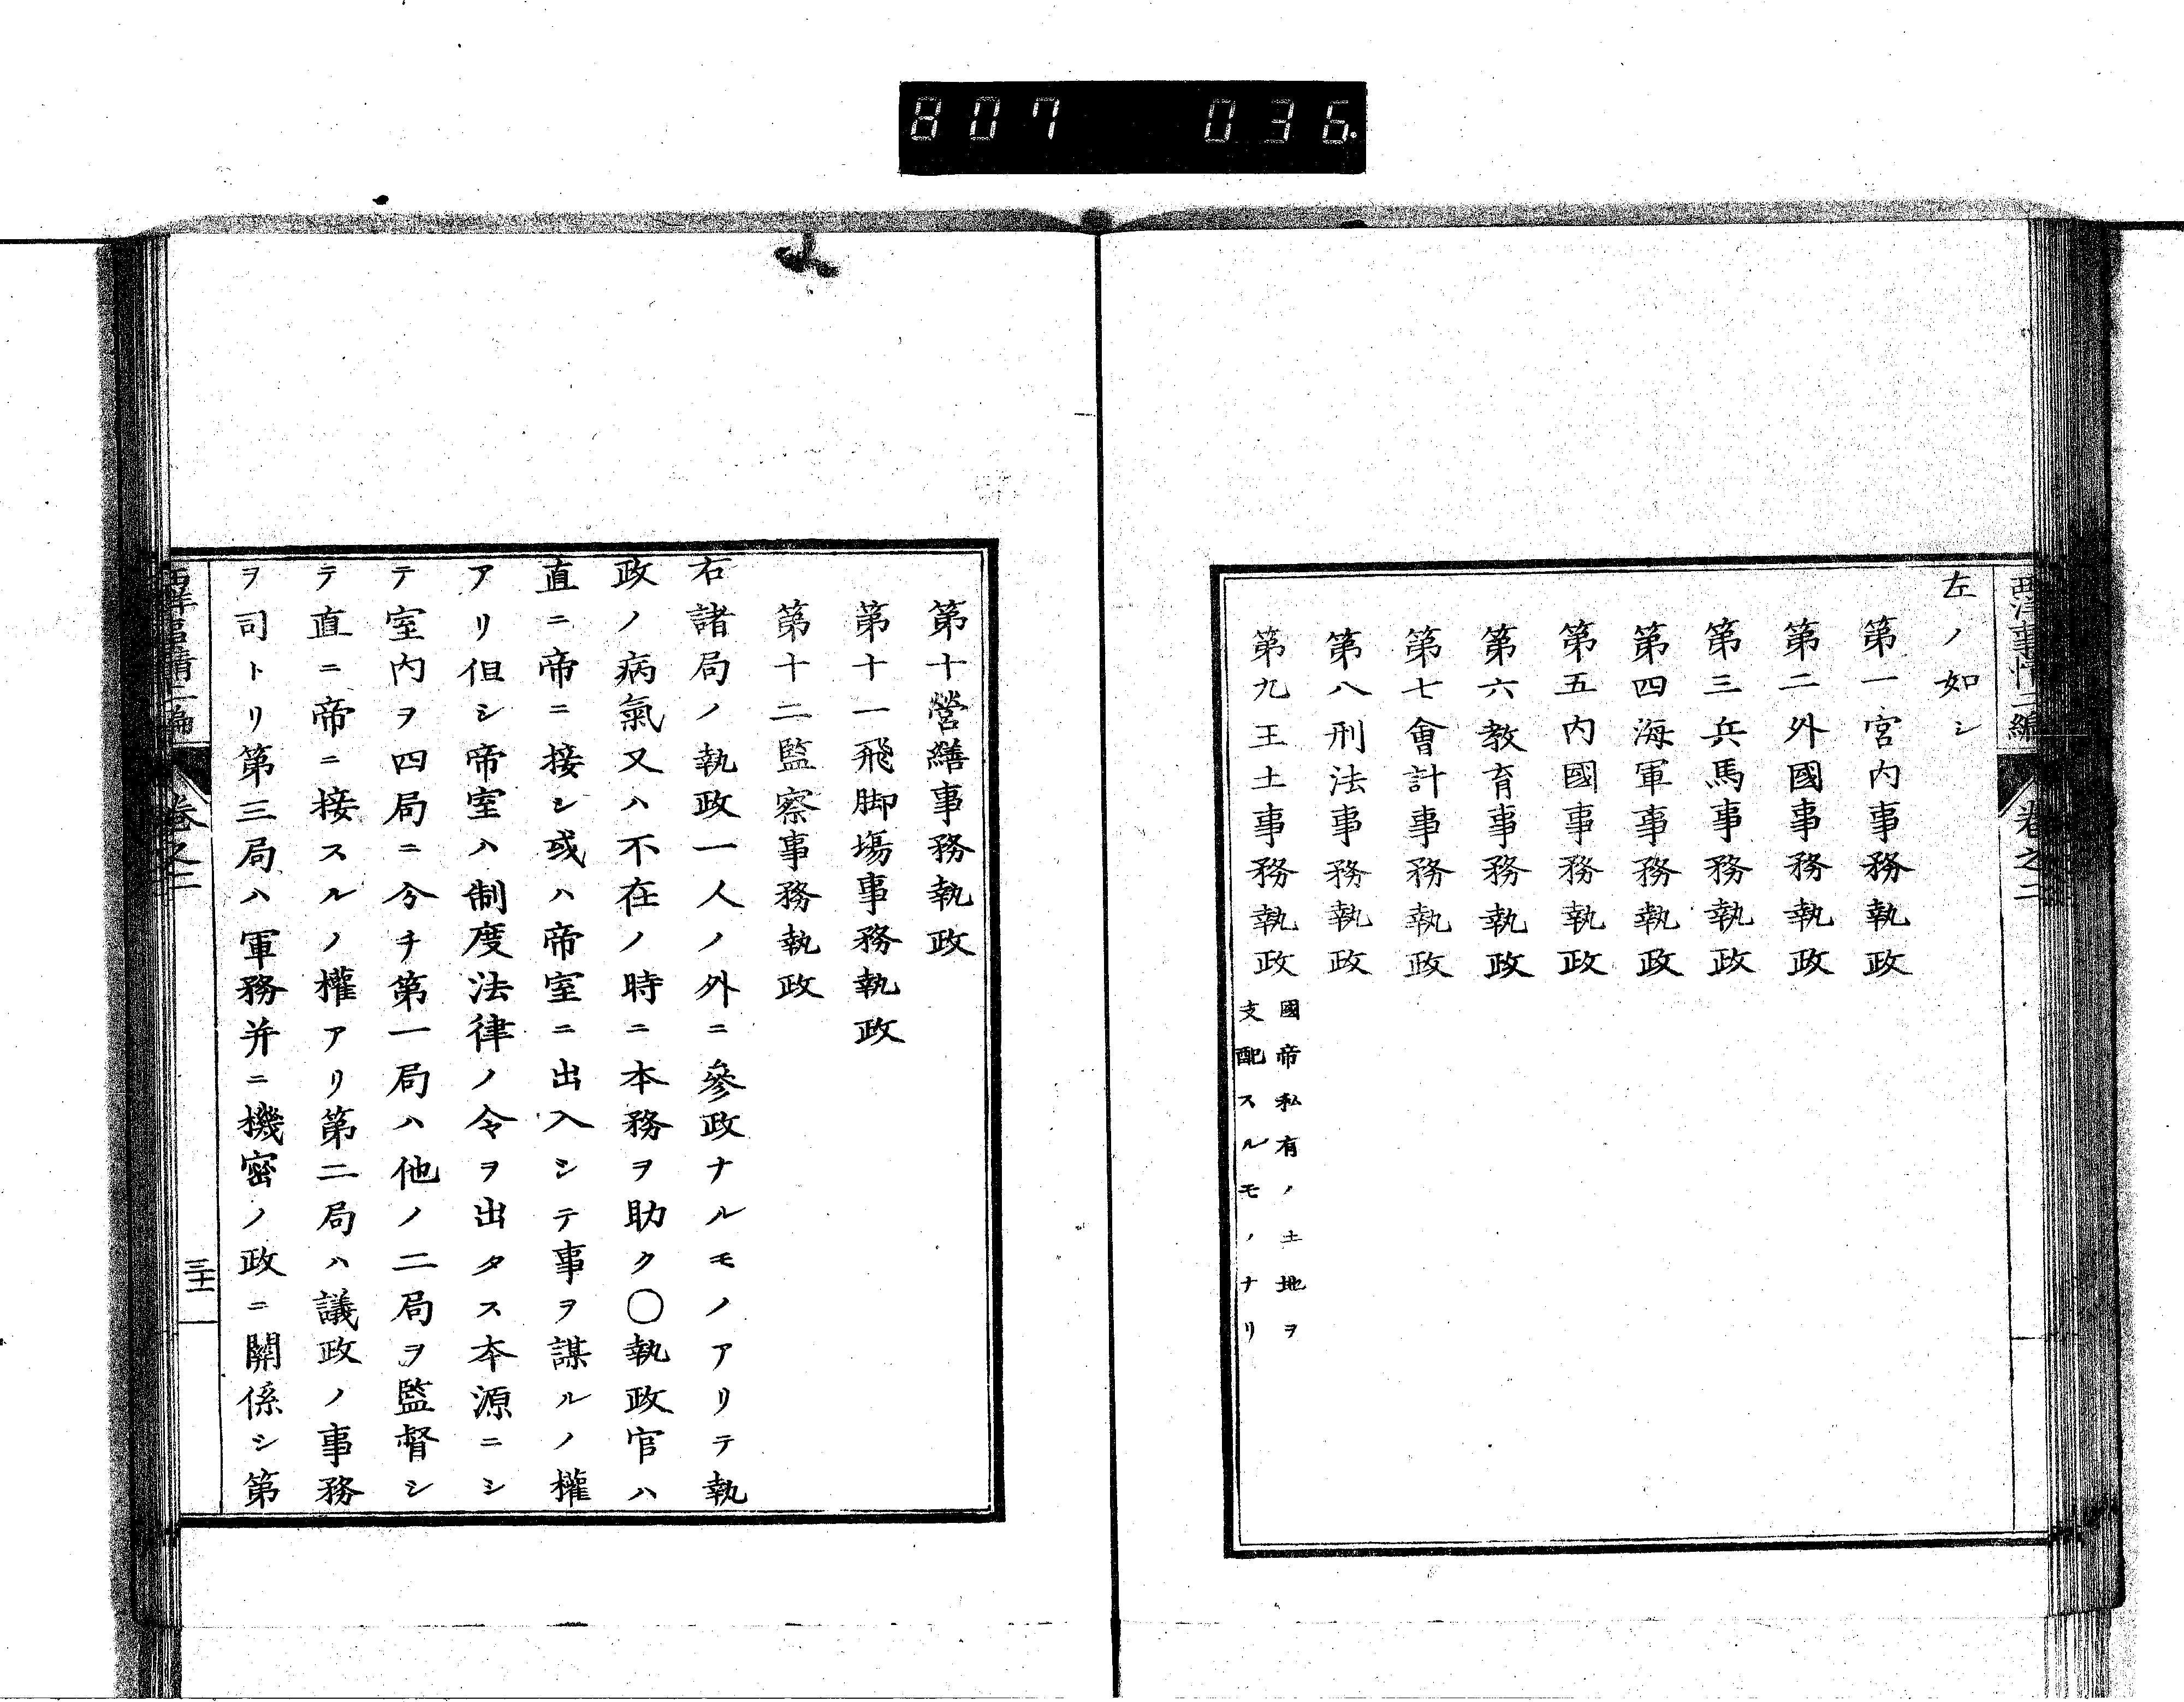 807 036
西洋事情二編 卷之二
左ノ如シ
第一宮内事務執政
第二外國事務執政
第三兵馬事務執政
第四海軍事務執政
第五内國事務執政
第六教育事務執政
第七會計事務執政
第八刑法事務執政
第九王土事務執政
國帝私有ノ土地ヲ
支配スルモノナリ
第十營繕事務執政
第十一飛脚塲事務執政
第十二監察事務執政
右諸局ノ執政一人ノ外ニ參政ナルモノアリテ執
政ノ病氣又ハ不在ノ時ニ本務ヲ助ク〇執政官ハ
直ニ帝ニ接シ或ハ帝室ニ出入シテ事ヲ謀ルノ權
アリ但シ帝室ハ制度法律ノ令ヲ出タス本源ニシ
テ室内ヲ四局ニ分チ第一局ハ他ノ二局ヲ監督シ
テ直ニ帝ニ接スルノ權アリ第二局ハ議政ノ事務
ヲ司トリ第三局ハ軍務并ニ機密ノ政ニ關係シ第
西洋事情二編 卷之二